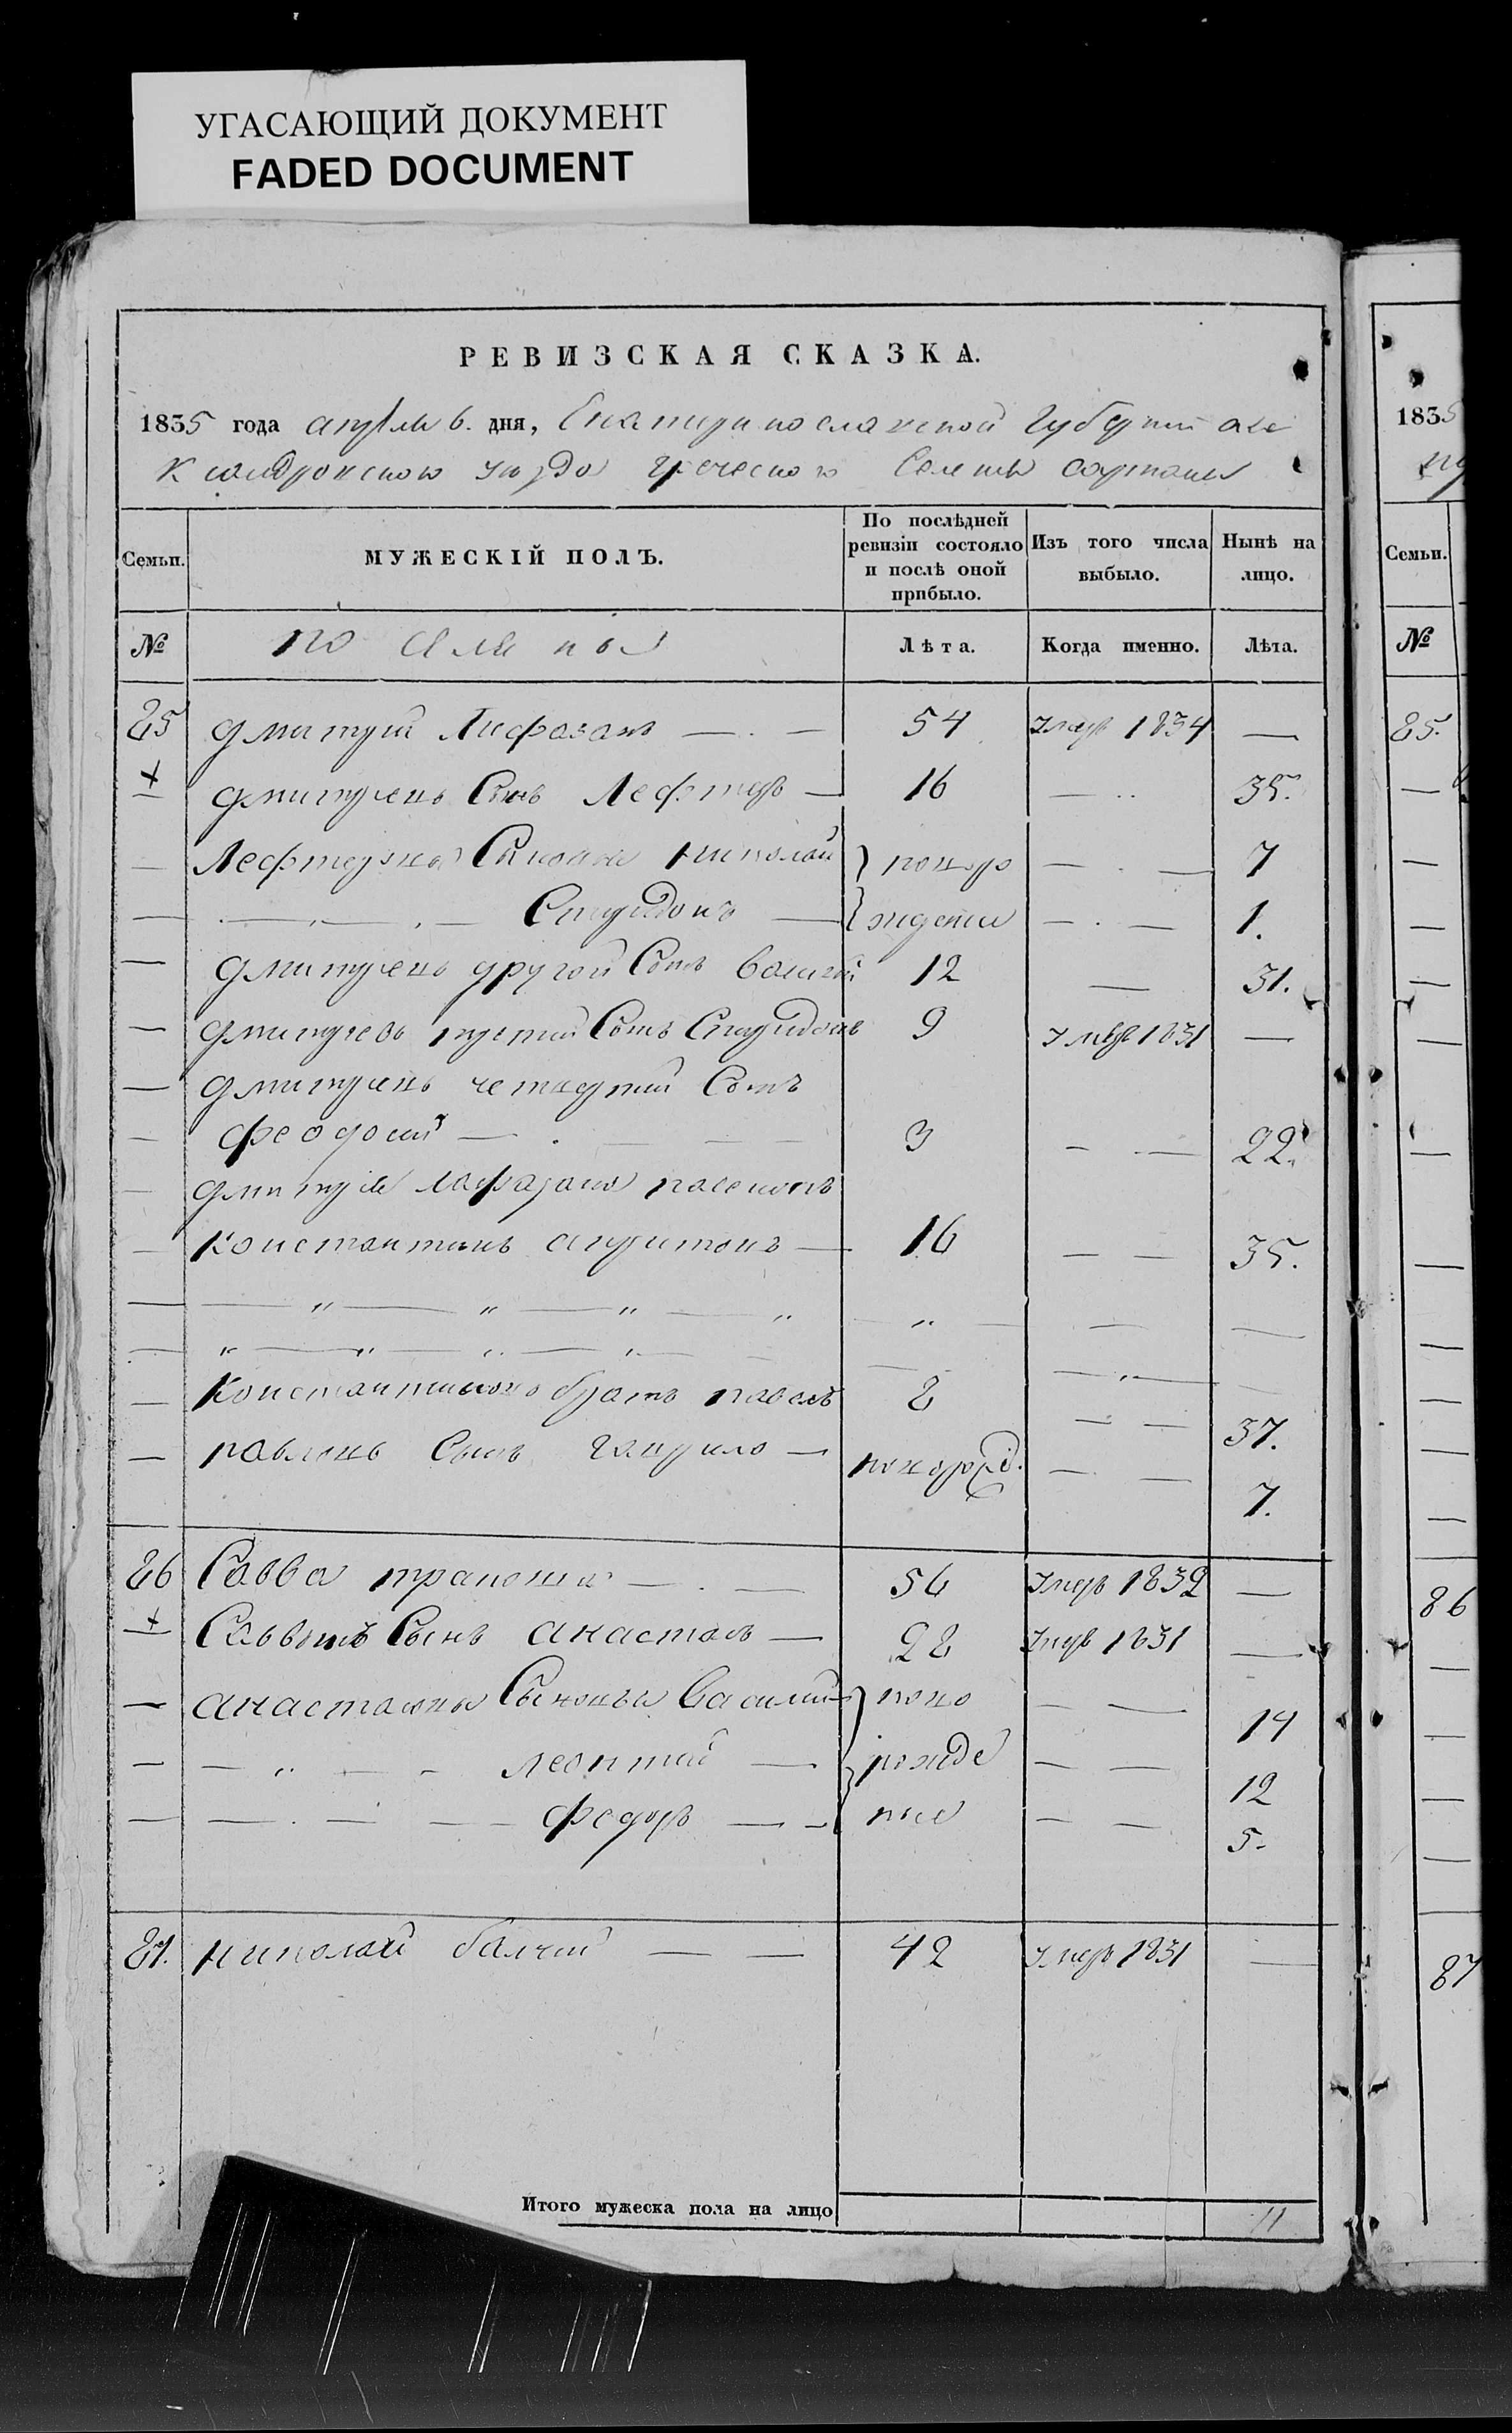 УГАСАЮЩИЙ ДОКУМЕНТ
FADED DOCUMENT
РЕВИЗСКАЯ СКАЗКА.
1835 года апрѣля 6. дня, Екатеринославской Губерніи але
ксандровского уѣзда греческого Селенія сартаны
Семьи. МУЖЕСКІЙ ПОЛЪ. По послѣдней ревизіи состояло и послѣ оной прибыло. Изъ того числа выбыло. Нынѣ на лицо.
№ Лѣта. Когда именно. Лѣта.
85 Дмитрій 54 Умеръ 1834 —
+ Дмитріевъ Сынъ Лефтеръ — 16 — 35.
— Лефтеровы Сыновья Николай } новоро — 7
— Спиридонъ — } жденіи — 1.
— Дмитріевъ другой Сынъ 12 — 31.
— Дмитріевъ третій Сынъ Спиридонъ 9 Умеръ 1831 —
— Дмитріевъ четвертій Сынъ
— Феодосий — 3 — 22.
— Дмитрія пасенокъ
— Константинъ — 16 — 35.
— Константиновъ братъ павелъ 8 — 37.
— павловъ Сынъ гаврило — новорожд. — 7.
86 Савва — 56 Умеръ 1832 —
+ Саввинъ Сынъ анастасъ — 28 Умеръ 1831 —
— анастасовы Сыновья Василий } ново — 14
— леонтий — } рожде — 12
— федоръ — ные — 5.
87. николай балчий — 42 Умеръ 1831 —
Итого мужеска пола на лицо 11
1835
Семьи.
№
85.
86
87